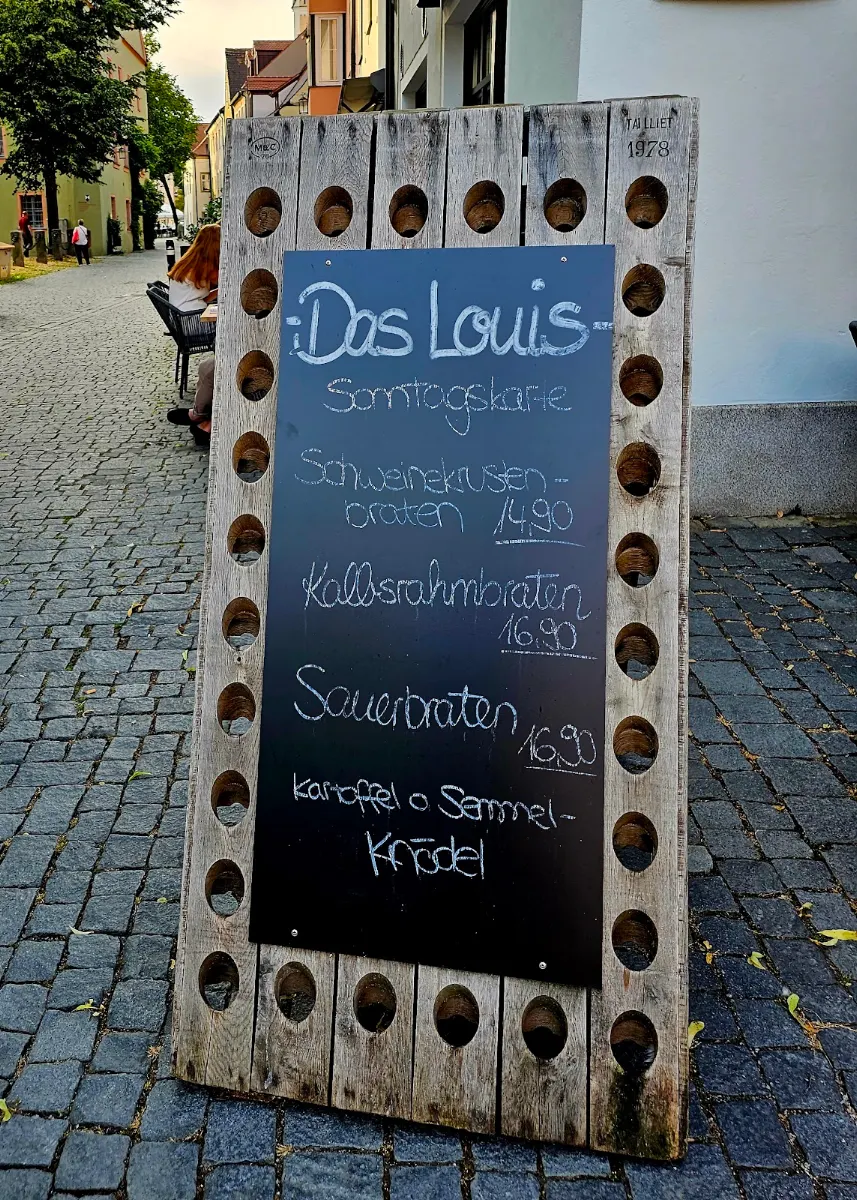 M&C
TAILLIET
1978
-Das Louis-
Sonntagskarte
Schweinekrusten-
braten 14,90
Kalbsrahmbraten
16,90
Sauerbraten
16,90
Kartoffel o Semmel-
Knödel